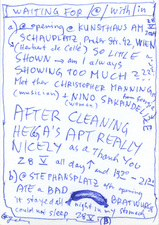 WAITING FOR @ with/in
a) @ opening @ KUNSTHAUS AM
SCHAUPLATZ, 42, WHEN
(Herbert de Colle) SO LITTLE
SHOWN — am I always
SHOWING TOO MUCH?
Metther CHRISTOPHER MANNING
(musician) + NINO SAKANDE
AFTER CLEANING
HEGGA'S APT REALLY
NICELY as a Thank YOU
28 V all day↑ and
b) @ STEPHANSPLATZ
ATE a BAD BRATWURST
it stayed all night in my stomach
could not sleep 28 V
B